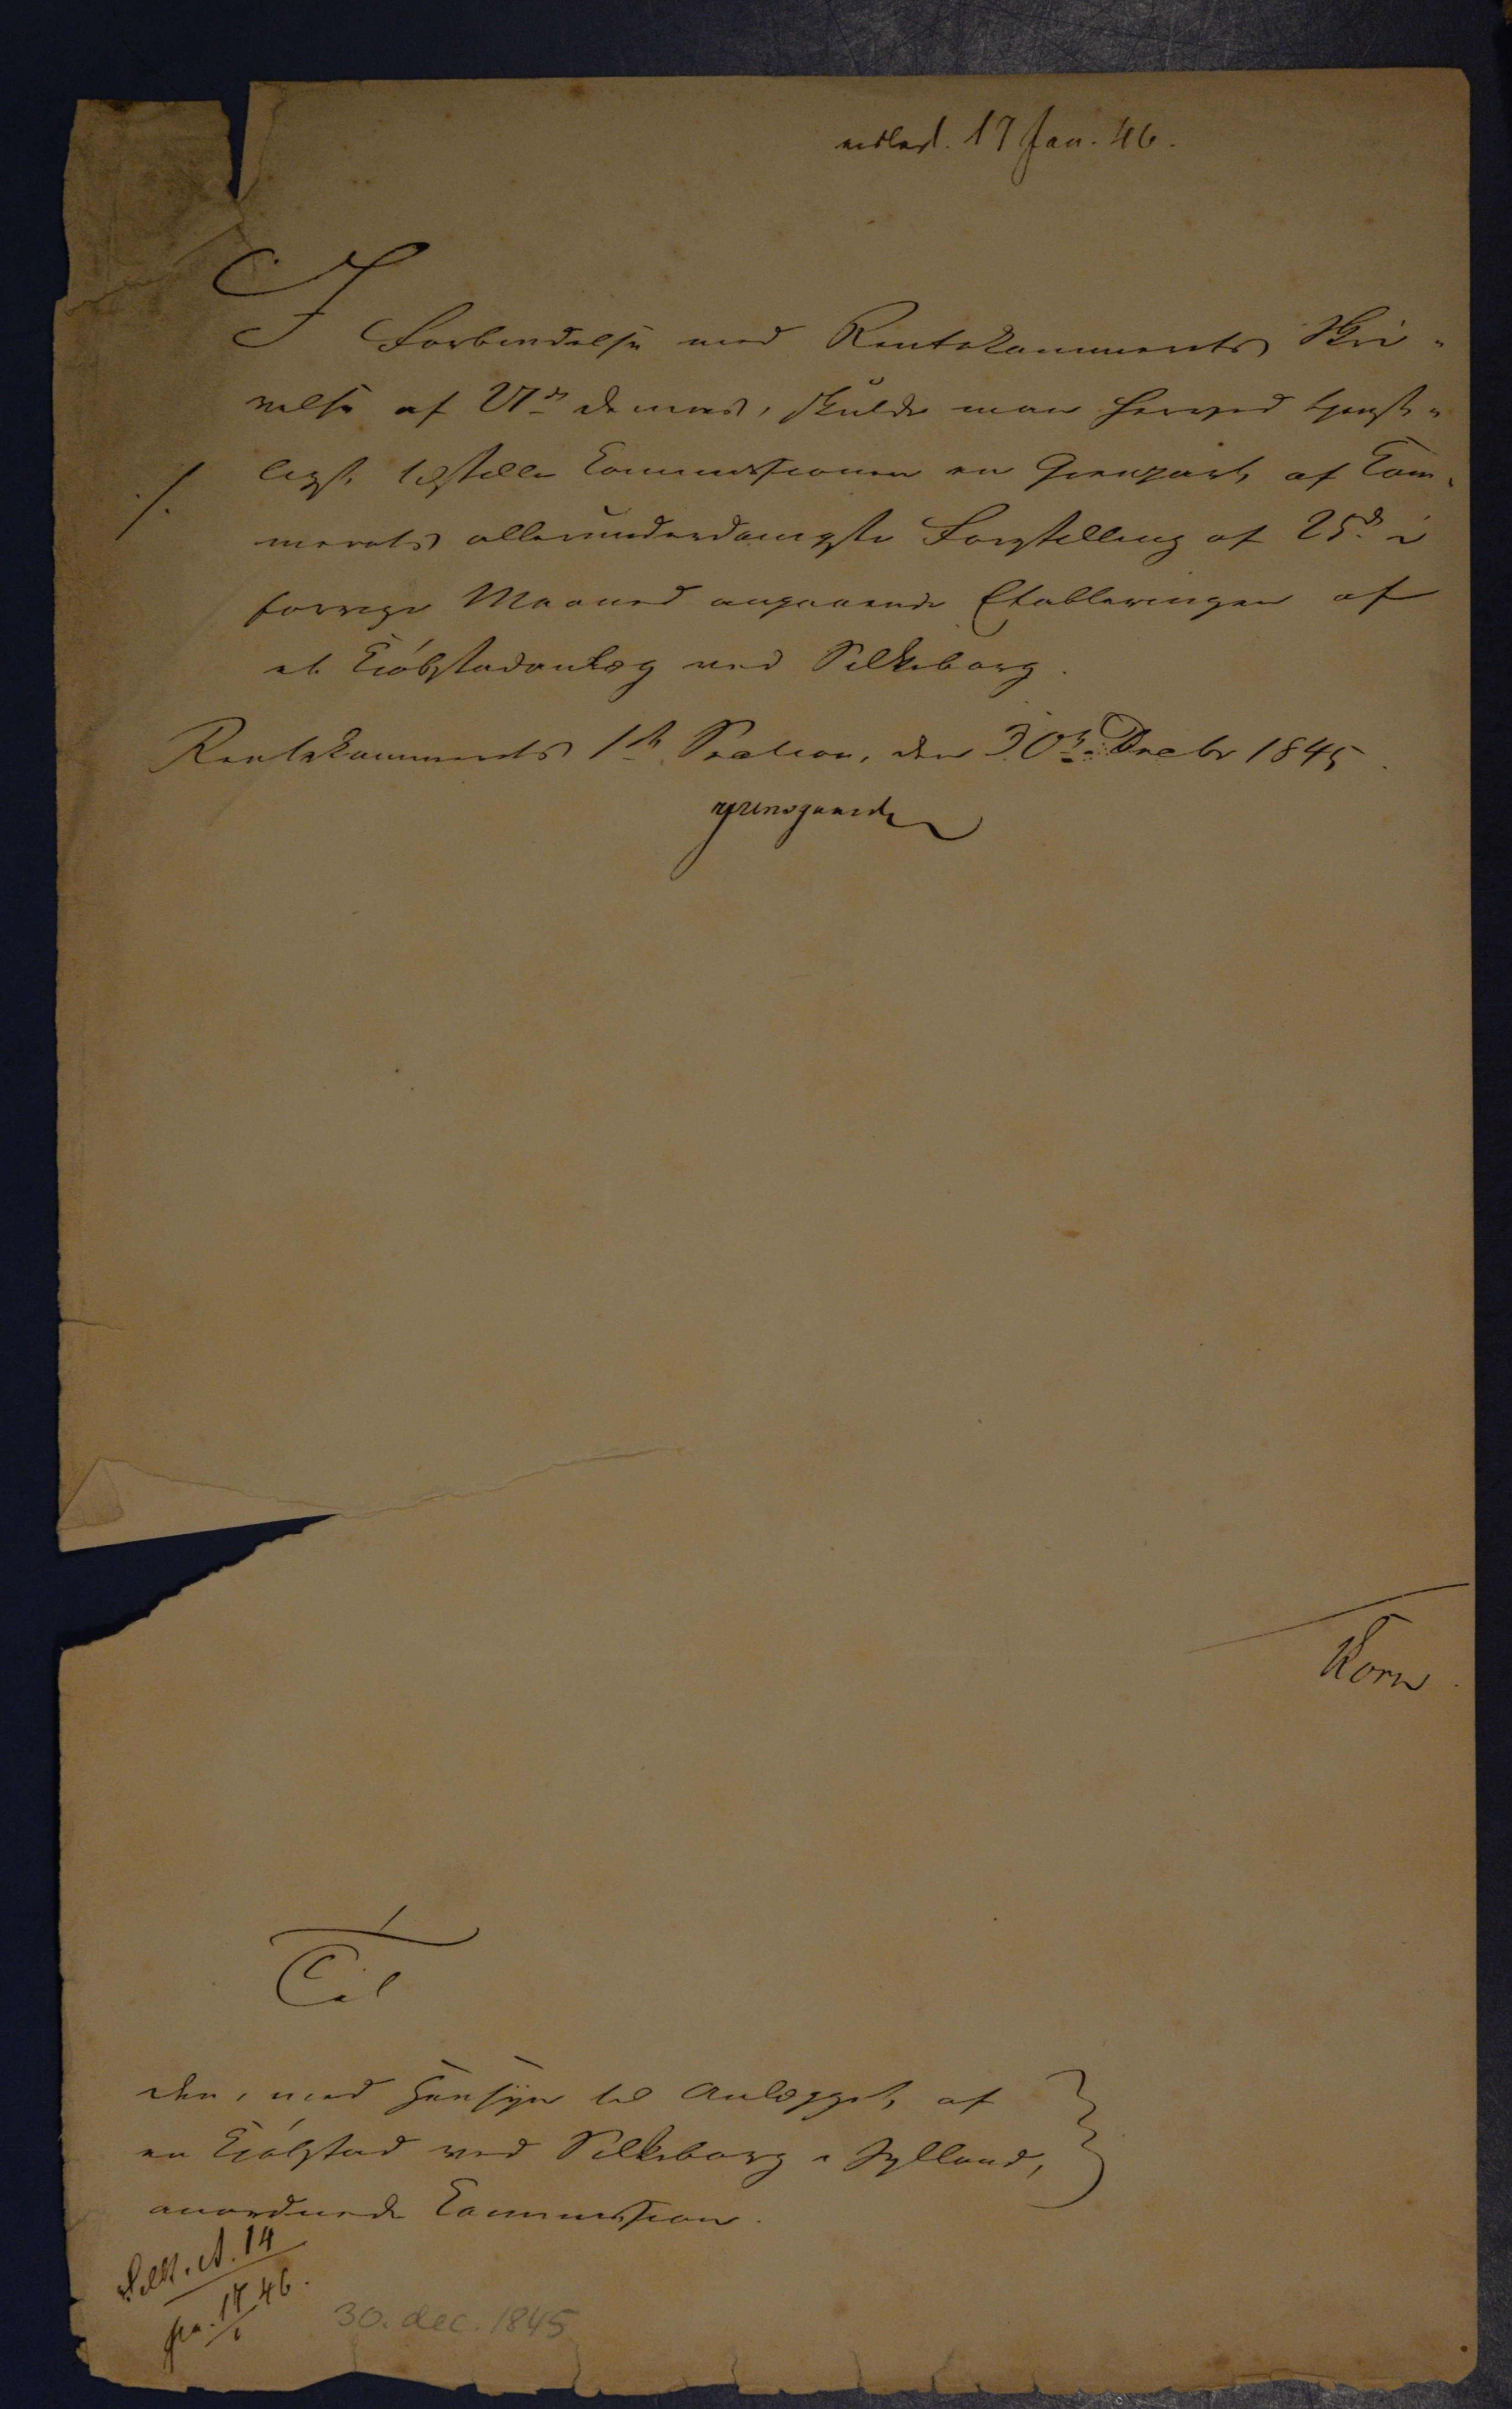 indlev. 17 Jan. 46.
I Forbindelse med Rentekammerets Skri-
velse af 27de dennes, skulde man herved tjenst-
./. ligst tilstille Commissionen en Gienpart af Kam-
merets allerunderdanigste Forestilling af 25de i
forrige Maaned angaaende Etableringen af
et Kiöbstadanlæg ved Silkeborg.
Rentekammerets 1ste Section, den 30te Decbr 1845.
Korn
Til
den, med Hensyn til Anlægget af
en Kiöbstad ved Silkeborg i Jylland,
anordnede Commission.
Silk. A. 14
pr. 17/1 46.
30. dec. 1845